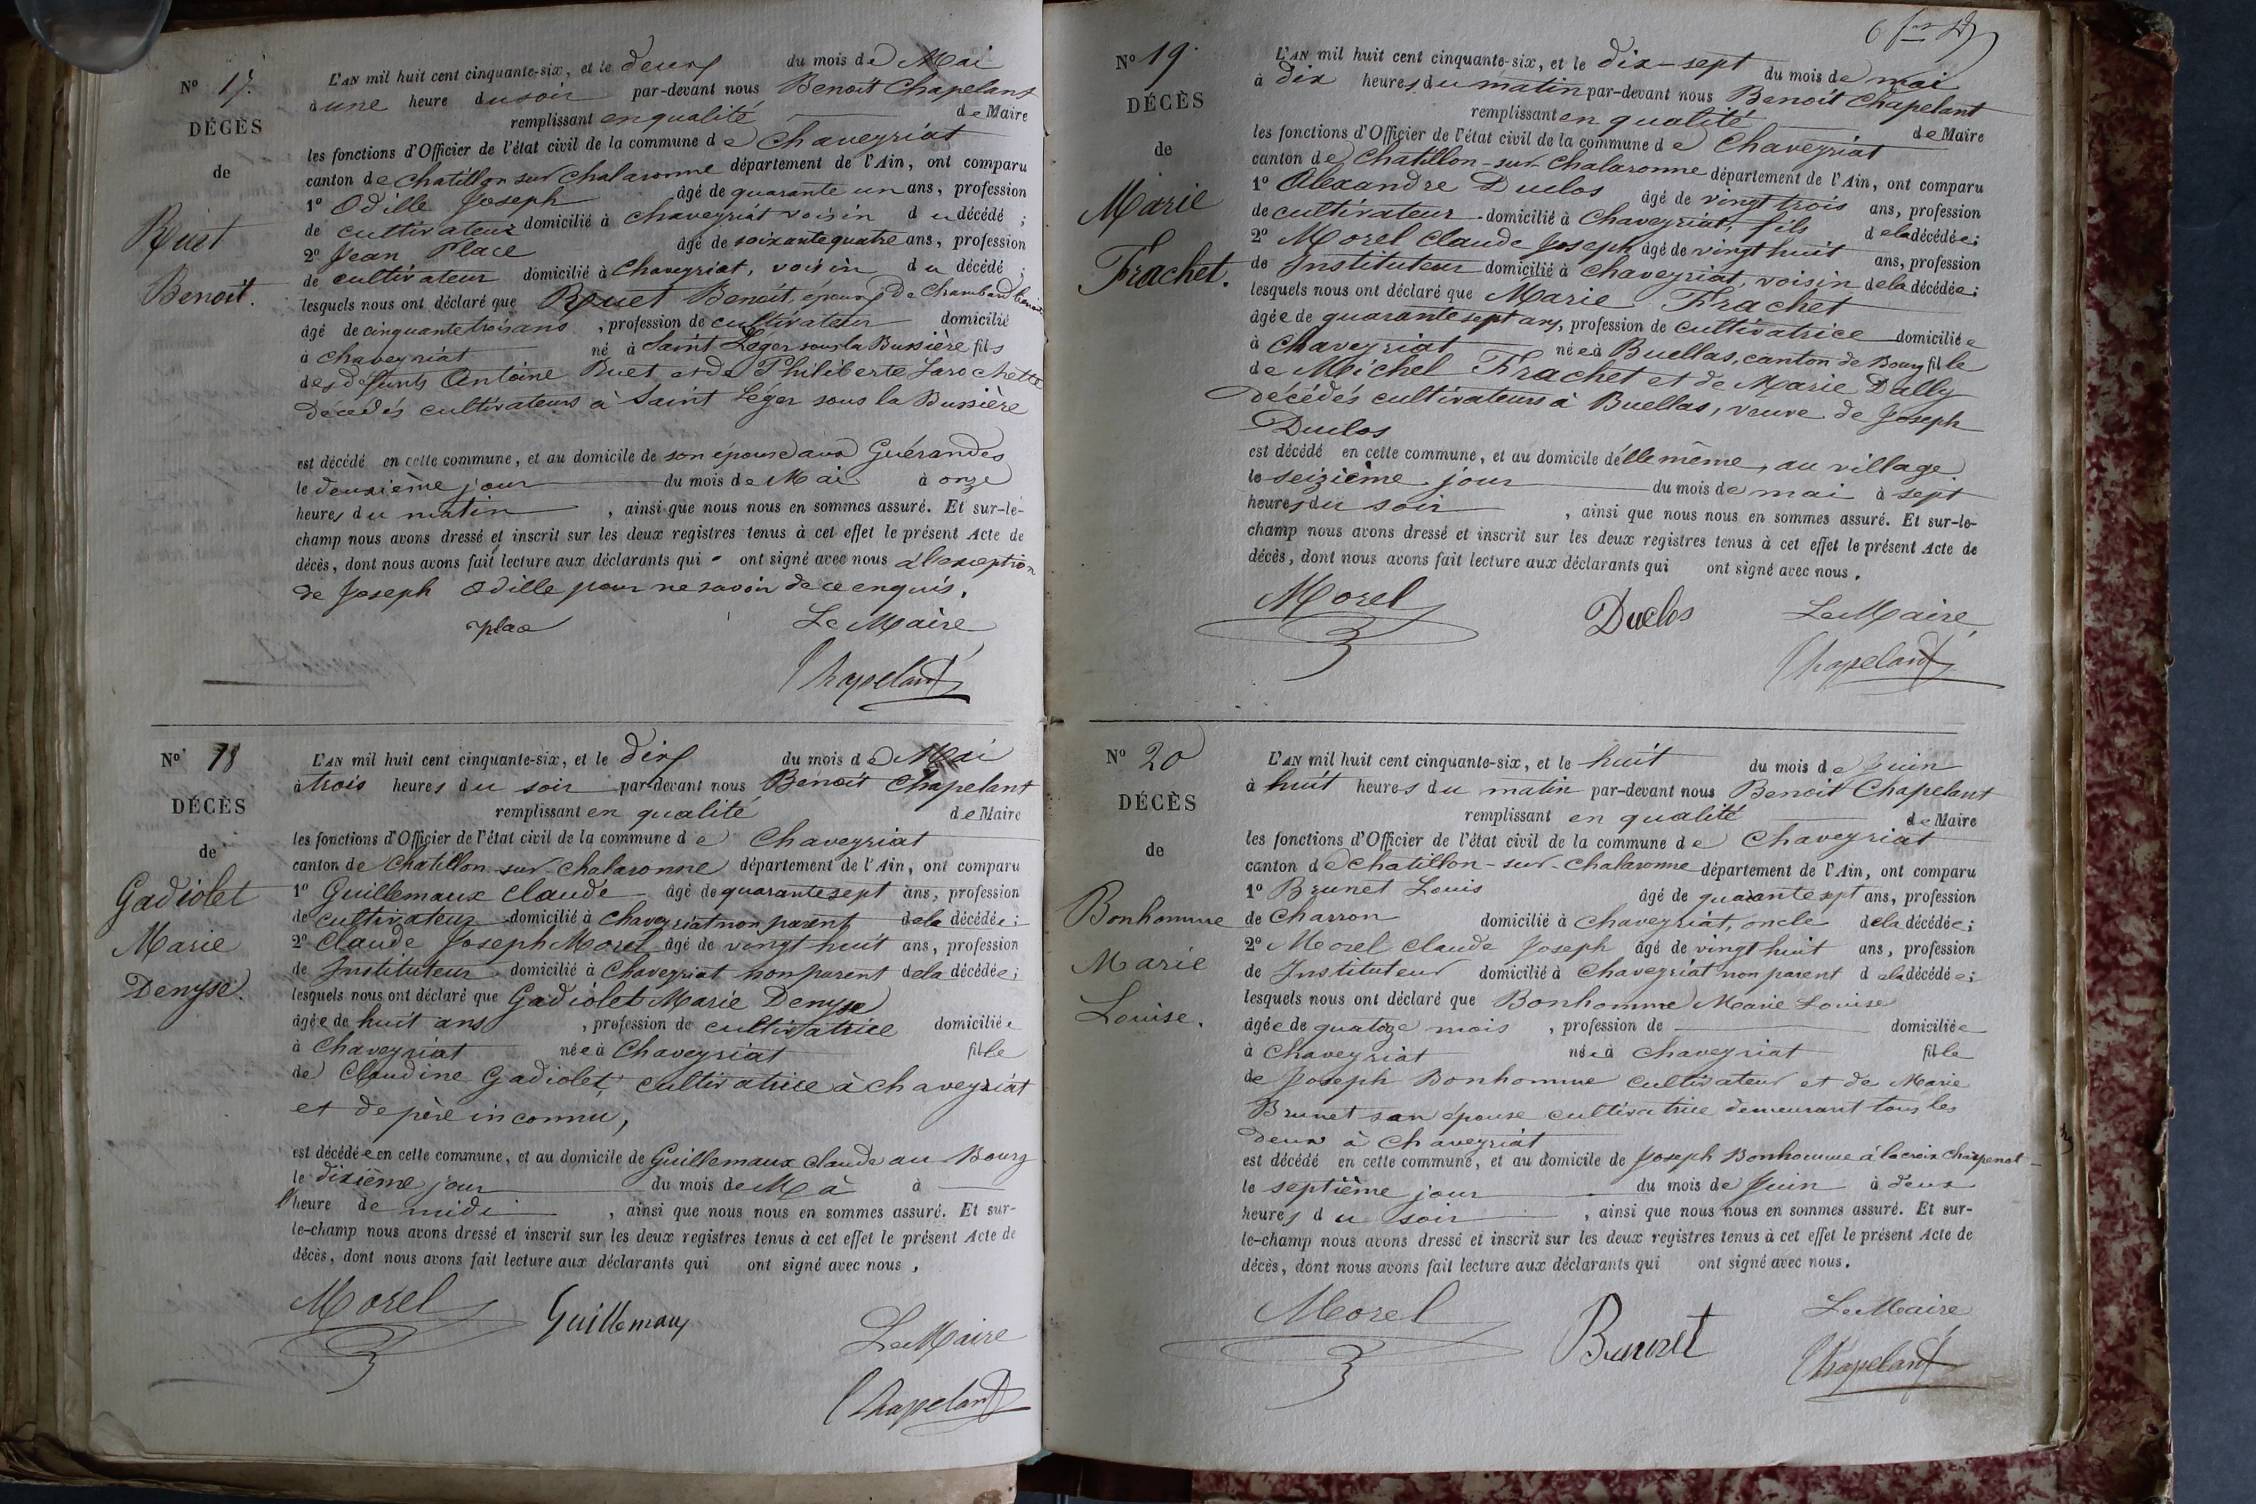 N° 17.
DÉCÈS
de
Ruet
Benoit.
L'AN mil huit cent cinquante-six, et le deux du mois de Mai
à une heure du soir par-devant nous Benoit Chapelant
remplissant en qualité de Maire
les fonctions d'Officier de l'état civil de la commune de Chaveyriat
canton de Chatillon sur Chalaronne département de l'Ain, ont comparu
1° Odille Joseph âgé de quarante un ans, profession
de cultivateur domicilié à Chaveyriat voisin du décédé ;
2° Jean Place âgé de soixante quatre ans, profession
de cultivateur domicilié à Chaveyriat, voisin du décédé ;
lesquels nous ont déclaré que Ruet Benoit, époux de Chambard
âgé de cinquante trois ans, profession de cultivateur domicilié
à Chaveyriat né à Saint Léger sous la Bussière fils
des défunts Antoine Ruet et de Philiberte Larochette
décédés cultivateurs à Saint Léger sous la Bussière
est décédé en cette commune, et au domicile de son épouse aux Guérandes
le deuxième jour du mois de Mai à onze
heures du matin, ainsi que nous nous en sommes assuré. Et sur-le-
champ nous avons dressé et inscrit sur les deux registres tenus à cet effet le présent Acte de
décès, dont nous avons fait lecture aux déclarants qui ont signé avec nous à l'exception
de Joseph Odille pour ne savoir de ce enquis.
place Le Maire
Chapelant
N° 18
DÉCÈS
de
Gadiolet
Marie
Denyse.
L'AN mil huit cent cinquante-six, et le dix du mois de Mai
à trois heures du soir par-devant nous Benoit Chapelant
remplissant en qualité de Maire
les fonctions d'Officier de l'état civil de la commune de Chaveyriat
canton de Chatillon-sur-Chalaronne département de l'Ain, ont comparu
1° Guillemaux Claude âgé de quarante sept ans, profession
de cultivateur domicilié à Chaveyriat non parent de la décédée ;
2° Claude Joseph Morel âgé de vingt huit ans, profession
de Instituteur domicilié à Chaveyriat non parent de la décédée ;
lesquels nous ont déclaré que Gadiolet Marie Denyse
âgée de huit ans, profession de cultivatrice domiciliée
à Chaveyriat née à Chaveyriat fille
de Claudine Gadiolet, cultivatrice à Chaveyriat
et de père inconnu,
est décédée en cette commune, et au domicile de Guillemaux Claude au Bourg
le dixième jour du mois de Mà à
l'heure de midi, ainsi que nous nous en sommes assuré. Et sur-
le-champ nous avons dressé et inscrit sur les deux registres tenus à cet effet le présent Acte de
décès, dont nous avons fait lecture aux déclarants qui ont signé avec nous,
Morel Guillemaux
Le Maire
Chapelant
N° 19.
DÉCÈS
de
Marie
Frachet.
L'AN mil huit cent cinquante-six, et le dix-sept du mois de mai
à dix heures du matin par-devant nous Benoit Chapelant
remplissant en qualité de Maire
les fonctions d'Officier de l'état civil de la commune de Chaveyriat
canton de Chatillon-sur-Chalaronne département de l'Ain, ont comparu
1° Alexandre Duclos âgé de vingt trois ans, profession
de cultivateur domicilié à Chaveyriat, fils de la décédée ;
2° Morel Claude Joseph âgé de vingt huit ans, profession
de Instituteur domicilié à Chaveyriat, voisin de la décédée ;
lesquels nous ont déclaré que Marie Frachet
âgée de quarante sept ans, profession de cultivatrice domiciliée
à Chaveyriat née à Buellas, canton de Bourg fille
de Michel Frachet et de Marie Dally
décédés cultivateurs à Buellas, veuve de Joseph
Duclos
est décédé en cette commune, et au domicile d'elle même, au village
le seizième jour du mois de mai à sept
heures du soir, ainsi que nous nous en sommes assuré. Et sur-le-
champ nous avons dressé et inscrit sur les deux registres tenus à cet effet le présent Acte de
décès, dont nous avons fait lecture aux déclarants qui ont signé avec nous.
Morel Duclos Le Maire,
Chapelant
N° 20
DÉCÈS
de
Bonhomme
Marie
Louise.
L'AN mil huit cent cinquante-six, et le huit du mois de Juin
à huit heures du matin par-devant nous Benoit Chapelant
remplissant en qualité de Maire
les fonctions d'Officier de l'état civil de la commune de Chaveyriat
canton de Chatillon-sur-Chalaronne département de l'Ain, ont comparu
1° Brunet Louis âgé de quarante sept ans, profession
de Charron domicilié à Chaveyriat, oncle de la décédée ;
2° Morel Claude Joseph âgé de vingt huit ans, profession
de Instituteur domicilié à Chaveyriat non parent de la décédée ;
lesquels nous ont déclaré que Bonhomme Marie Louise
âgée de quatoze mois, profession de domiciliée
à Chaveyriat née à Chaveyriat fille
de Joseph Bonhomme cultivateur et de Marie
Brunet son épouse cultivatrice demeurant tous les
deux à Chaveyriat
est décédé en cette commune, et au domicile de Joseph Bonhomme à la croix
le septième jour du mois de Juin à deux
heures du soir, ainsi que nous nous en sommes assuré. Et sur-
le-champ nous avons dressé et inscrit sur les deux registres tenus à cet effet le présent Acte de
décès, dont nous avons fait lecture aux déclarants qui ont signé avec nous.
Morel Brunet Le Maire
Chapelant